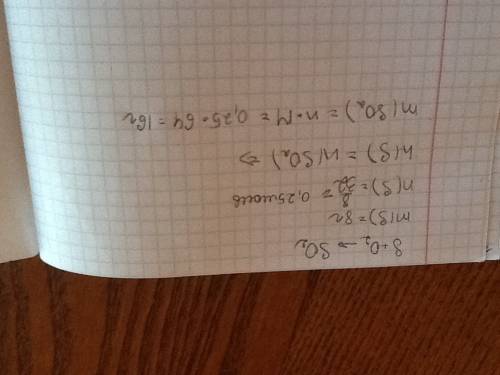 S + O₂ → SO₂
m(S) = 8г
n(S) = 8/32 = 0,25моль
n(S) = n(SO₂) ⇒
m(SO₂) = n • M = 0,25 • 64 = 16г